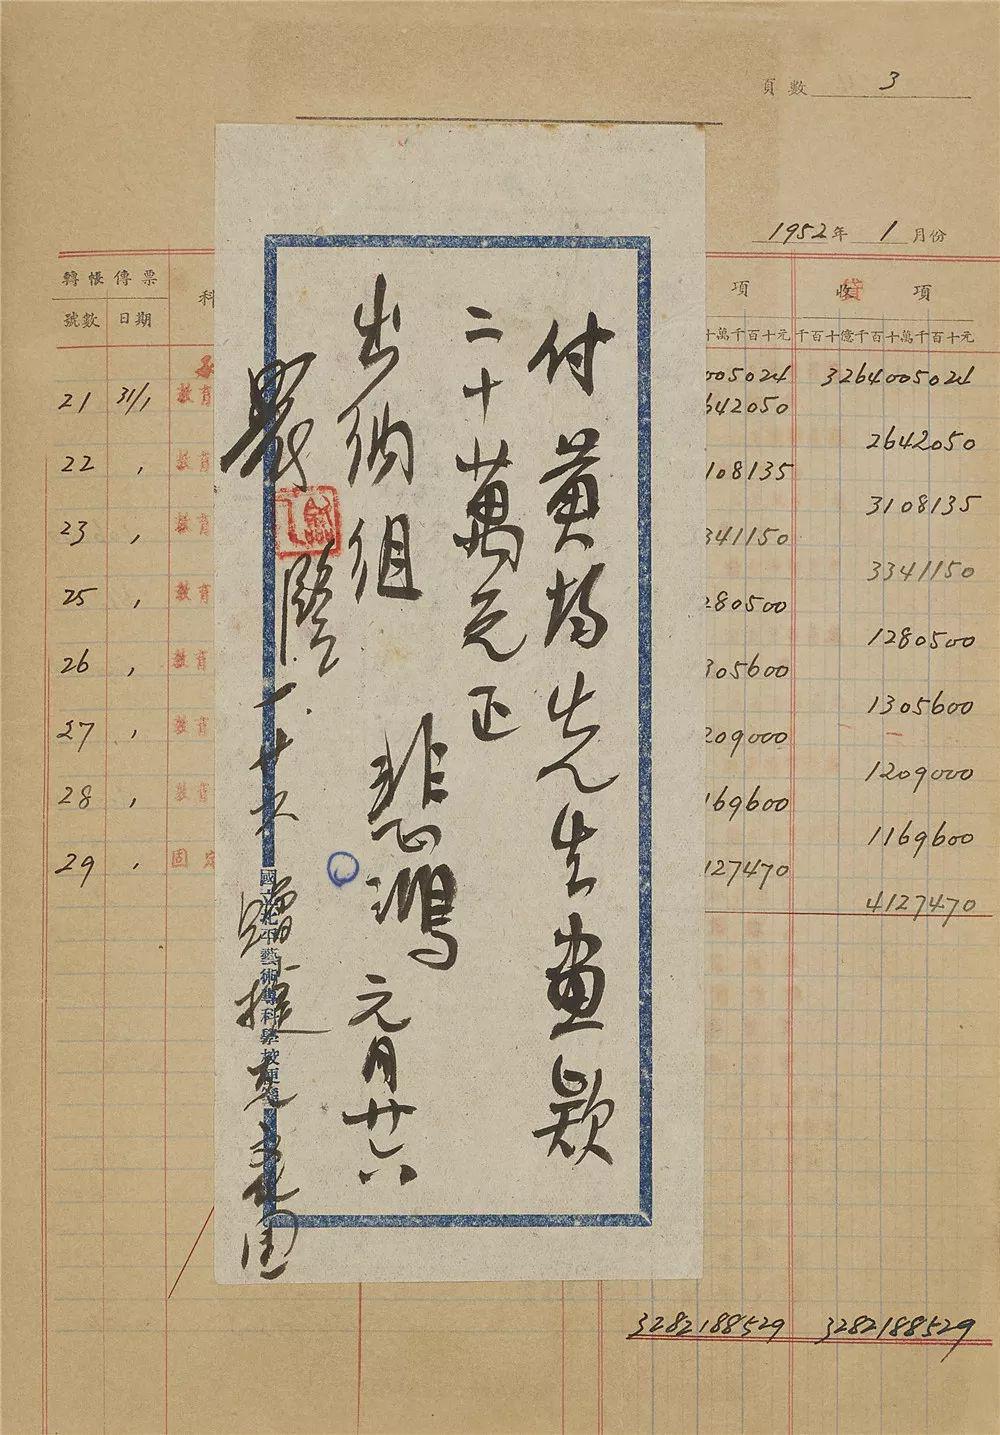 頁數 3
1952年 1月份
轉帳傳票
號數 日期
科
項
收 貸 項
十萬千百十元
千百十億千百十萬千百十元
005024 3264005024
21 31/1 教育 642050
2642050
22 , 教育 108135
3108135
23 , 教育 341150
3341150
25 , 教育 280500
1280500
26 , 教育 305600
1305600
27 , 教育 209000
1209000
28 , 教育 169600
1169600
29 , 固定 127470
4127470
3282188529 3282188529
付黃均先生畫款
二十萬元正
出納組
悲鴻 元月廿六
一廿六
國立北平藝術專科學校便箋